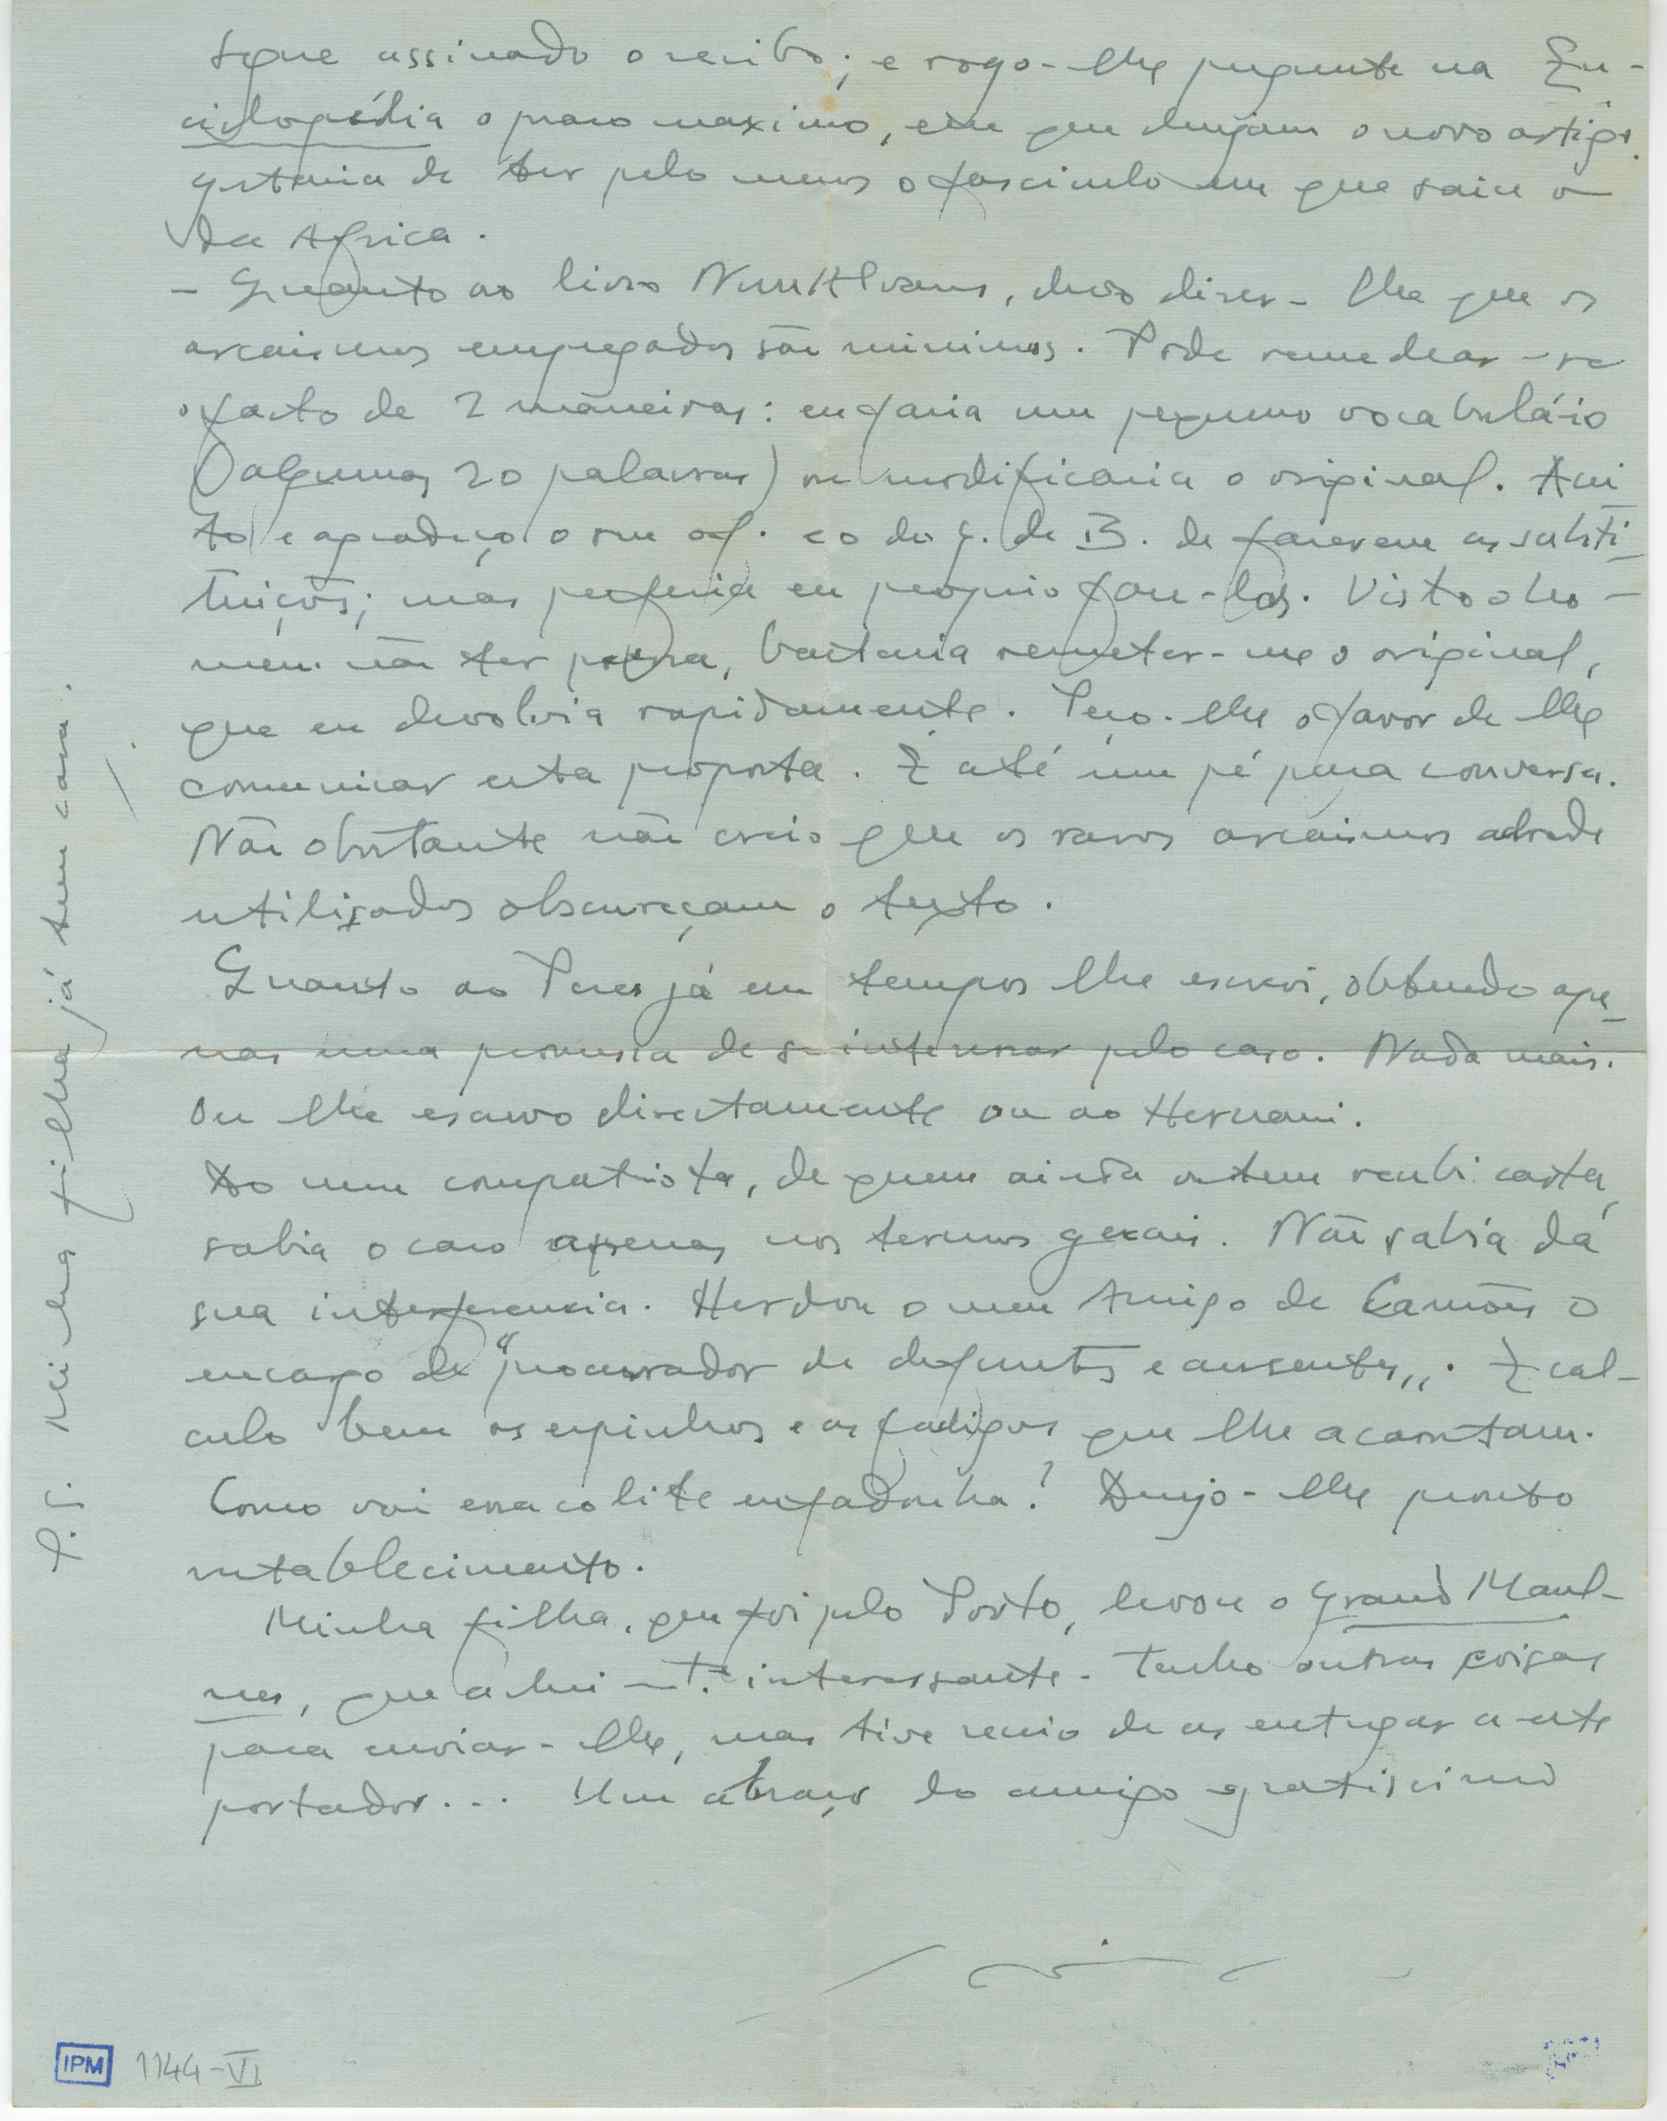 Segue assinado o recibo; e rogo-lhe pergunte na En-
ciclopédia o prazo maximo, em que desejam o novo artigo.
Gostaria de ter pelo menos o fasciculo em que saiu o
da Africa.
- Quanto ao livro Nun'Alvares, devo dizer-lhe que os
arcaismos empregados são minimos. Pode remediar-se
o facto de 2 maneiras: eu faria um pequeno vocabulário
(algumas 20 palavras) ou modificaria o original. Acei-
to e agradeço o seu of. e o do G. de B. de fazerem as substi-
tuições; mas preferia eu proprio faze-las. Visto o ho-
mem não ter pressa, bastaria remeter-me o original,
que eu devolvia rapidamente. Peço-lhe o favor de lhe
comunicar esta proposta. É até um pé para conversa.
Não obstante não creio que os raros arcaismos adrede
utilizados obscureçam o texto.
Quanto ao Peres já em tempos lhe escrevi, obtendo ape-
nas uma promessa de se interessar pelo caso. Nada mais.
Ou lhe escrevo directamente ou ao Hernani.
Do meu compatriota, de quem ainda ontem recebi carta,
sabia o caso apenas nos termos gerais. Não sabia da
sua interferencia. Herdou o meu Amigo de Camões o
encargo de "procurador de defuntos e ausentes,,. E cal-
culo bem os espinhos e as fadigas que lhe acarretam.
Como vai essa colite enfadonha? Desejo-lhe pronto
restablecimento.
Minha filha, que foi pelo Porto, levou o Grand Meaul-
nes, que achei m.to interessante. Tenho outras coisas
para enviar-lhe, mas tive receio de as entregar a este
portador... Um abraço do amigo gratissimo
P.S. Minha filha já tem casa.
IPM 1144-VI